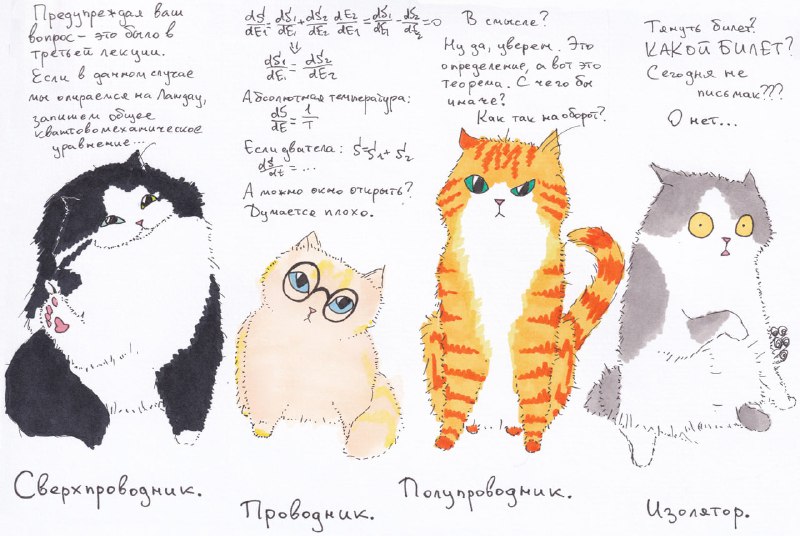 Предупреждая ваш
вопрос – это было в
третьей лекции.
Если в данном случае
мы опираемся на Ландау,
запишем общее
квантовомеханическое
уравнение...
dS/dE₁ = dS₁/dE₁ + dS₂/dE₂ dE₂/dE₁ = dS₁/dE₁ - dS₂/dE₂ = 0
⇓
dS₁/dE₁ = dS₂/dE₂
Абсолютная температура:
dS/dE = 1/T
Если два тела: S = S₁ + S₂
dS/dt = ...
А можно окно открыть?
Думается плохо.
В смысле?
Ну да, уверен. Это
определение, а вот это
теорема. С чего бы
иначе?
Как так наоборот?
Тянуть билет?
КАКОЙ БИЛЕТ?
Сегодня не
письмак???
О нет...
Сверхпроводник.
Проводник.
Полупроводник.
Изолятор.